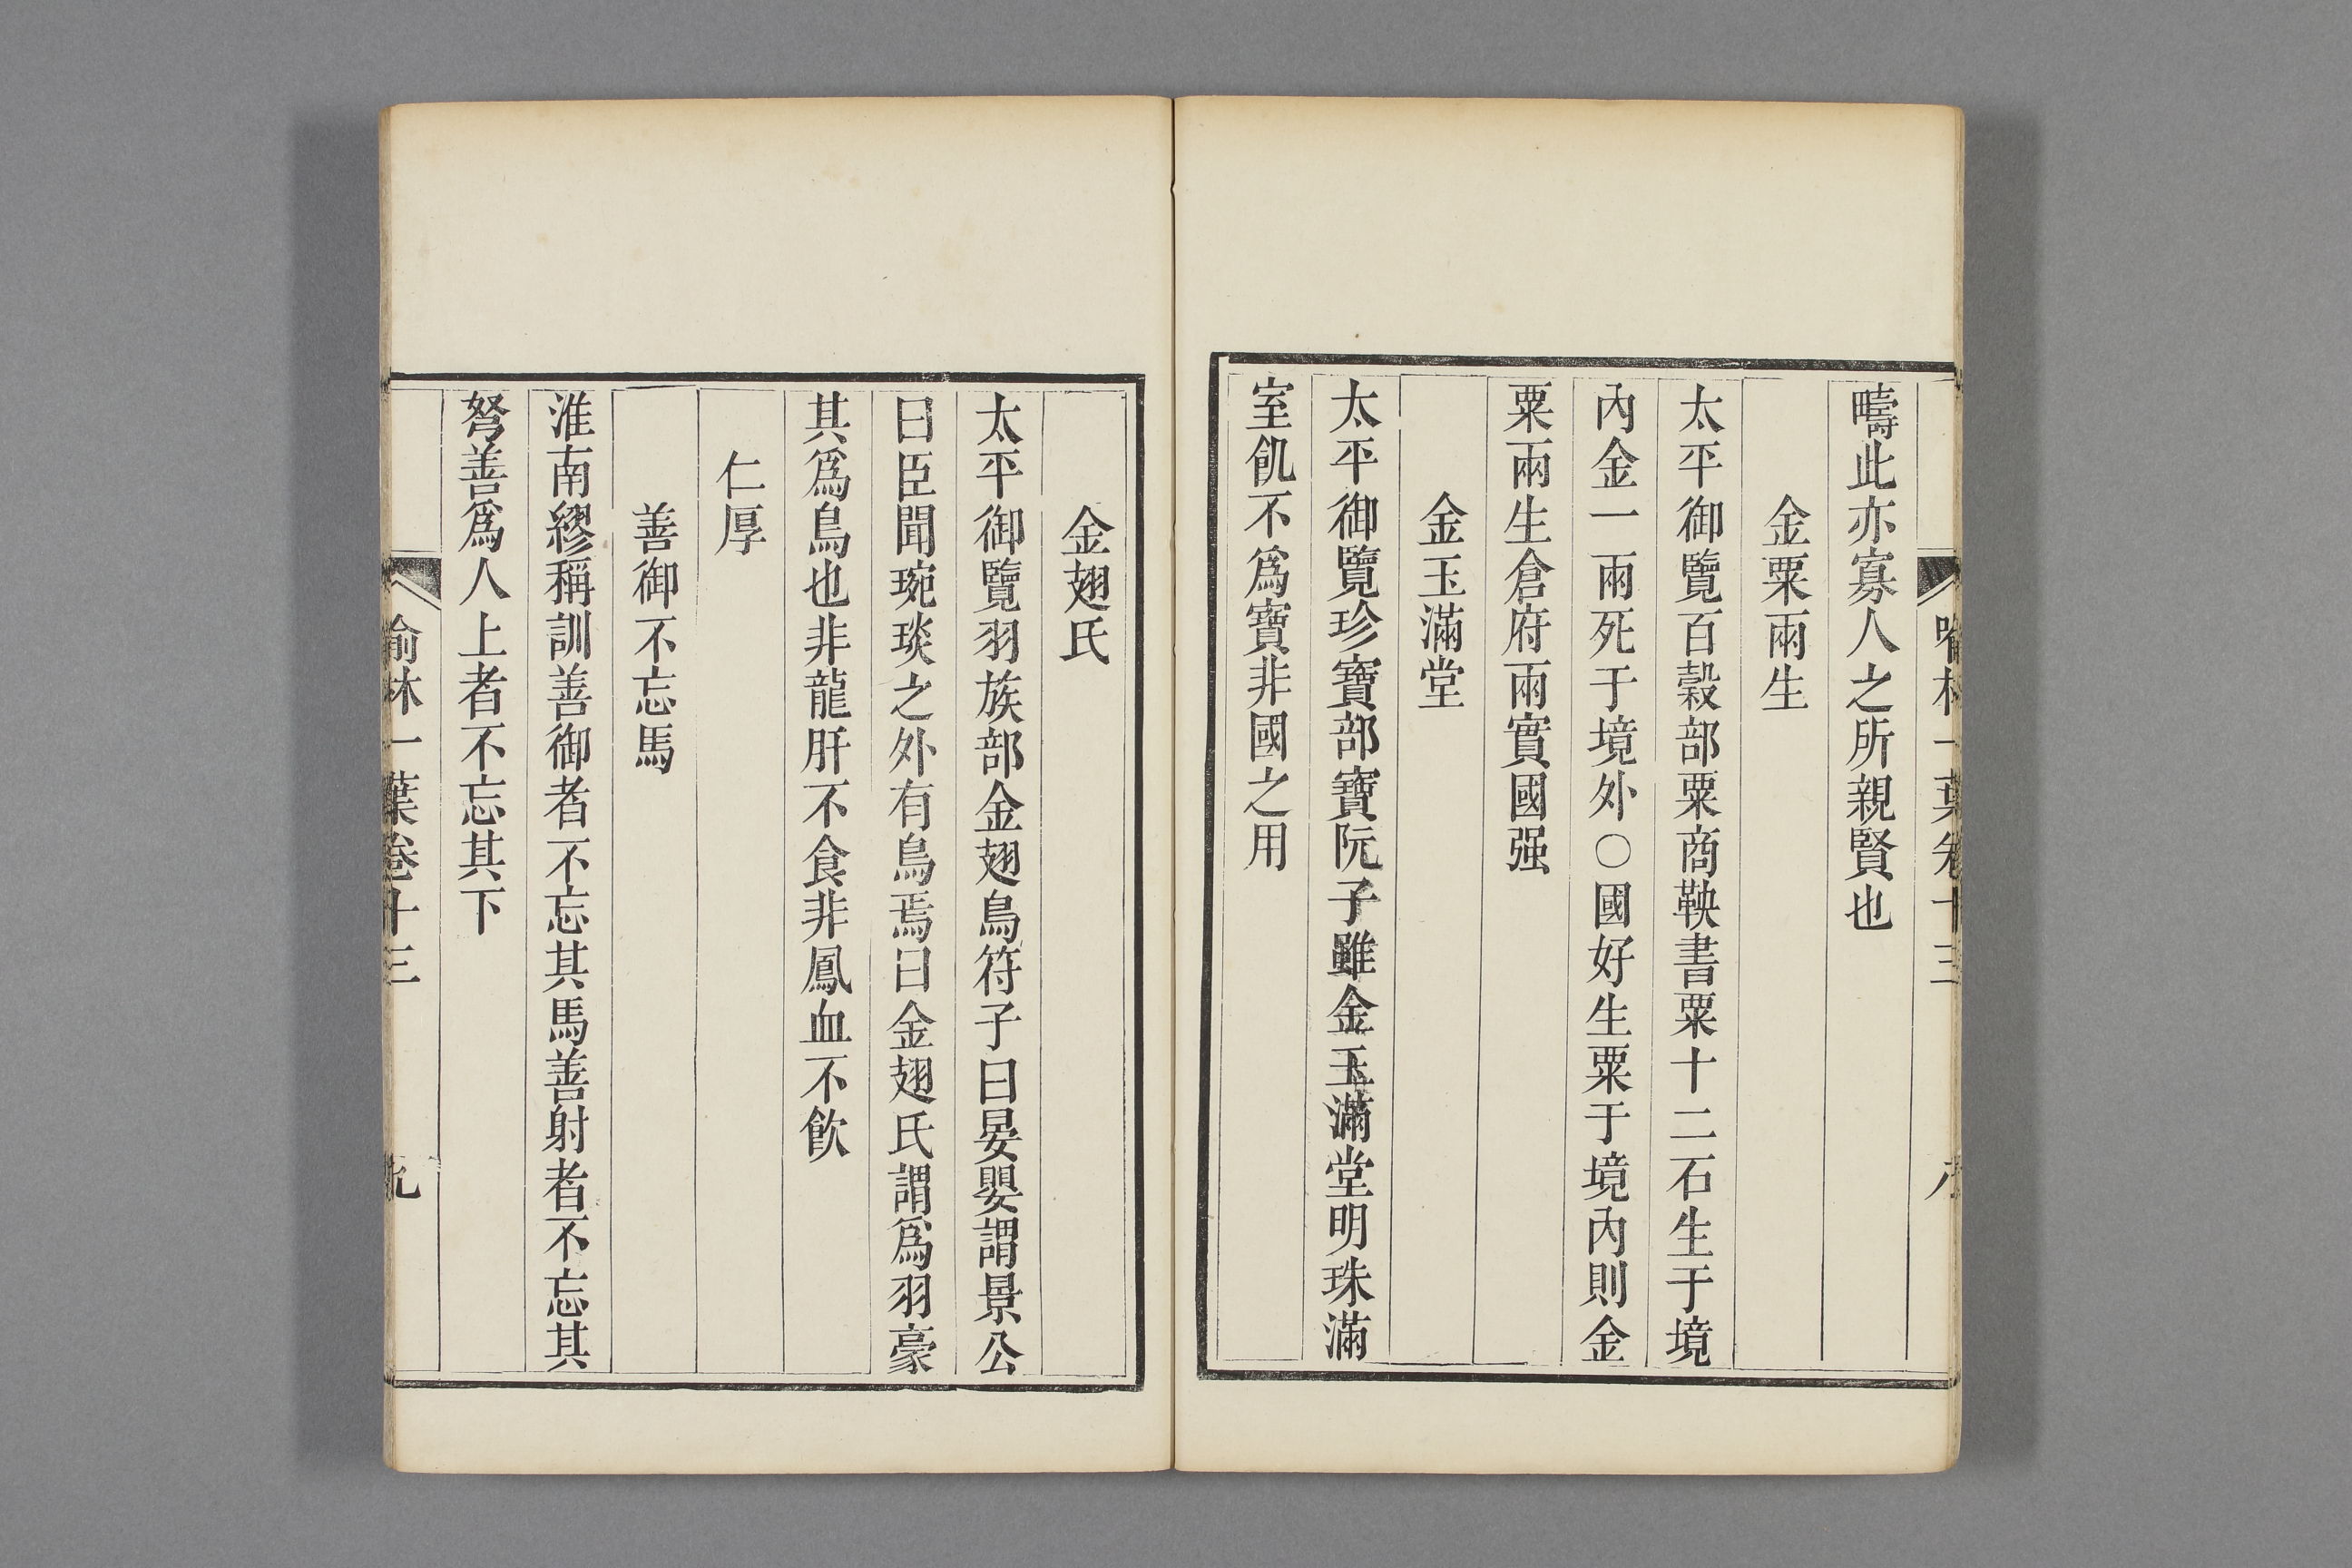 喻林一葉卷十三
八
疇此亦寡人之所親賢也
金粟兩生
太平御覽百穀部粟商鞅書粟十二石生于境
內金一兩死于境外○國好生粟于境內則金
粟兩生倉府兩實國强
金玉滿堂
太平御覽珍寶部寶阮子雖金玉滿堂明珠滿
室飢不爲寶非國之用
金翅氏
太平御覽羽族部金翅鳥符子曰晏嬰謂景公
曰臣聞琬琰之外有鳥焉曰金翅氏謂爲羽豪
其爲鳥也非龍肝不食非鳳血不飲
仁厚
善御不忘馬
淮南繆稱訓善御者不忘其馬善射者不忘其
弩善爲人上者不忘其下
喻林一葉卷十三
九